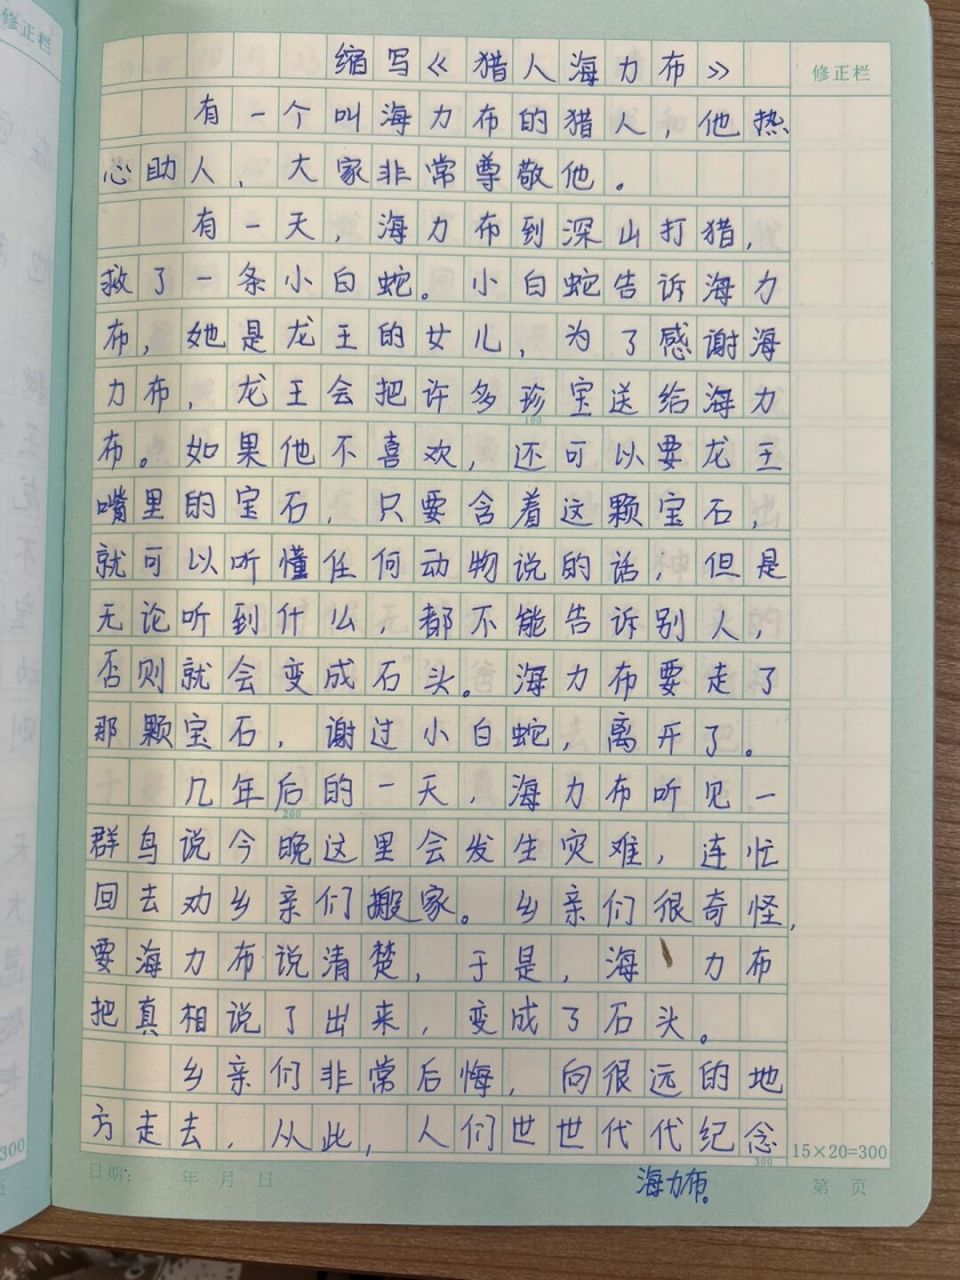 修正栏
缩写《猎人海力布》
修正栏
有一个叫海力布的猎人，他热
心助人，大家非常尊敬他。
有一天，海力布到深山打猎，
救了一条小白蛇。小白蛇告诉海力
布，她是龙王的女儿，为了感谢海
力布，龙王会把许多珍宝送给海力
100
布。如果他不喜欢，还可以要龙王
嘴里的宝石，只要含着这颗宝石，
就可以听懂任何动物说的话，但是
无论听到什么，都不能告诉别人，
否则就会变成石头。海力布要走了
那颗宝石，谢过小白蛇，离开了。
几年后的一天，海力布听见一
200
群鸟说今晚这里会发生灾难，连忙
回去劝乡亲们搬家。乡亲们很奇怪，
要海力布说清楚，于是，海力布
把真相说了出来，变成了石头。
乡亲们非常后悔，向很远的地
方走去，从此，人们世世代代纪念
300
15×20=300
海力布。
日期： 年 月 日
第 页
300